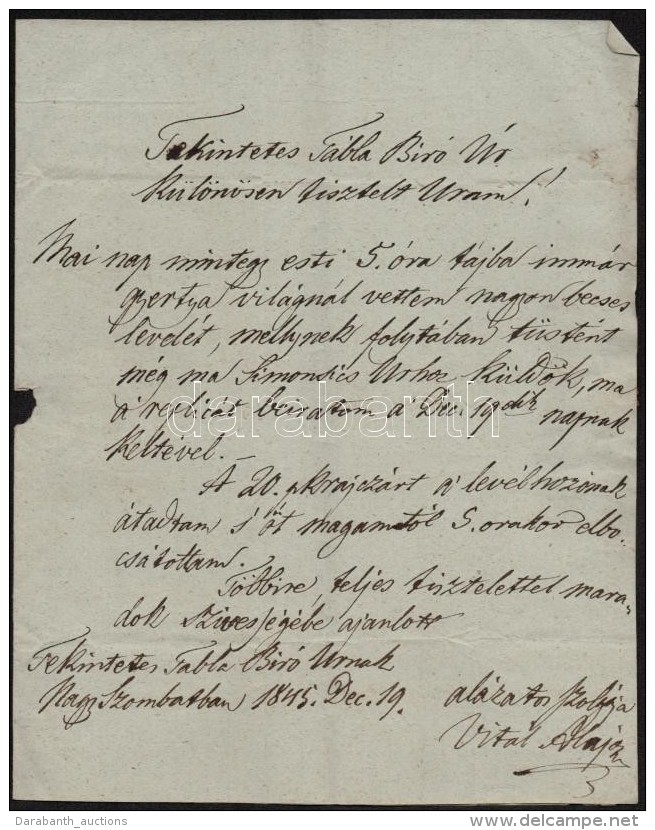 Tekintetes Tábla Biró Úr
különösen tisztelt Uram!
Mai nap mintegy esti 5. óra tájba immár
gyertya világnál vettem nagyon becses
levelét, mellynek folytában tüstént
még ma Simonsics Urhoz küldök, ma
a replicát beiratom á Dec. 19dik napnak
keltével. –
A 20. pkrajczárt a' levélhozónak
átadtam s őt magamtól 5. orakor elbo-
csátottam.
Többire, teljes tisztelettel mara-
dok szivességébe ajanlott
Tekintetes Tabla Biró Urnak
Nagy Szombatban 1845. Dec. 19. alázatos szolgája
Vitál Alajos
darabanth
Darabanth_auctions
delcampe.net